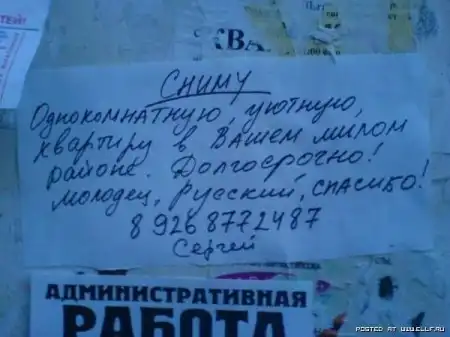 КВА
СНИМУ
Однокомнатную, уютную,
квартиру в Вашем милом
районе. Долгосрочно!
молодец, русский, спасибо!
8 926 8772487
Сергей
АДМИНИСТРАТИВНАЯ
РАБОТА
POSTED AT WWW.ELLF.RU